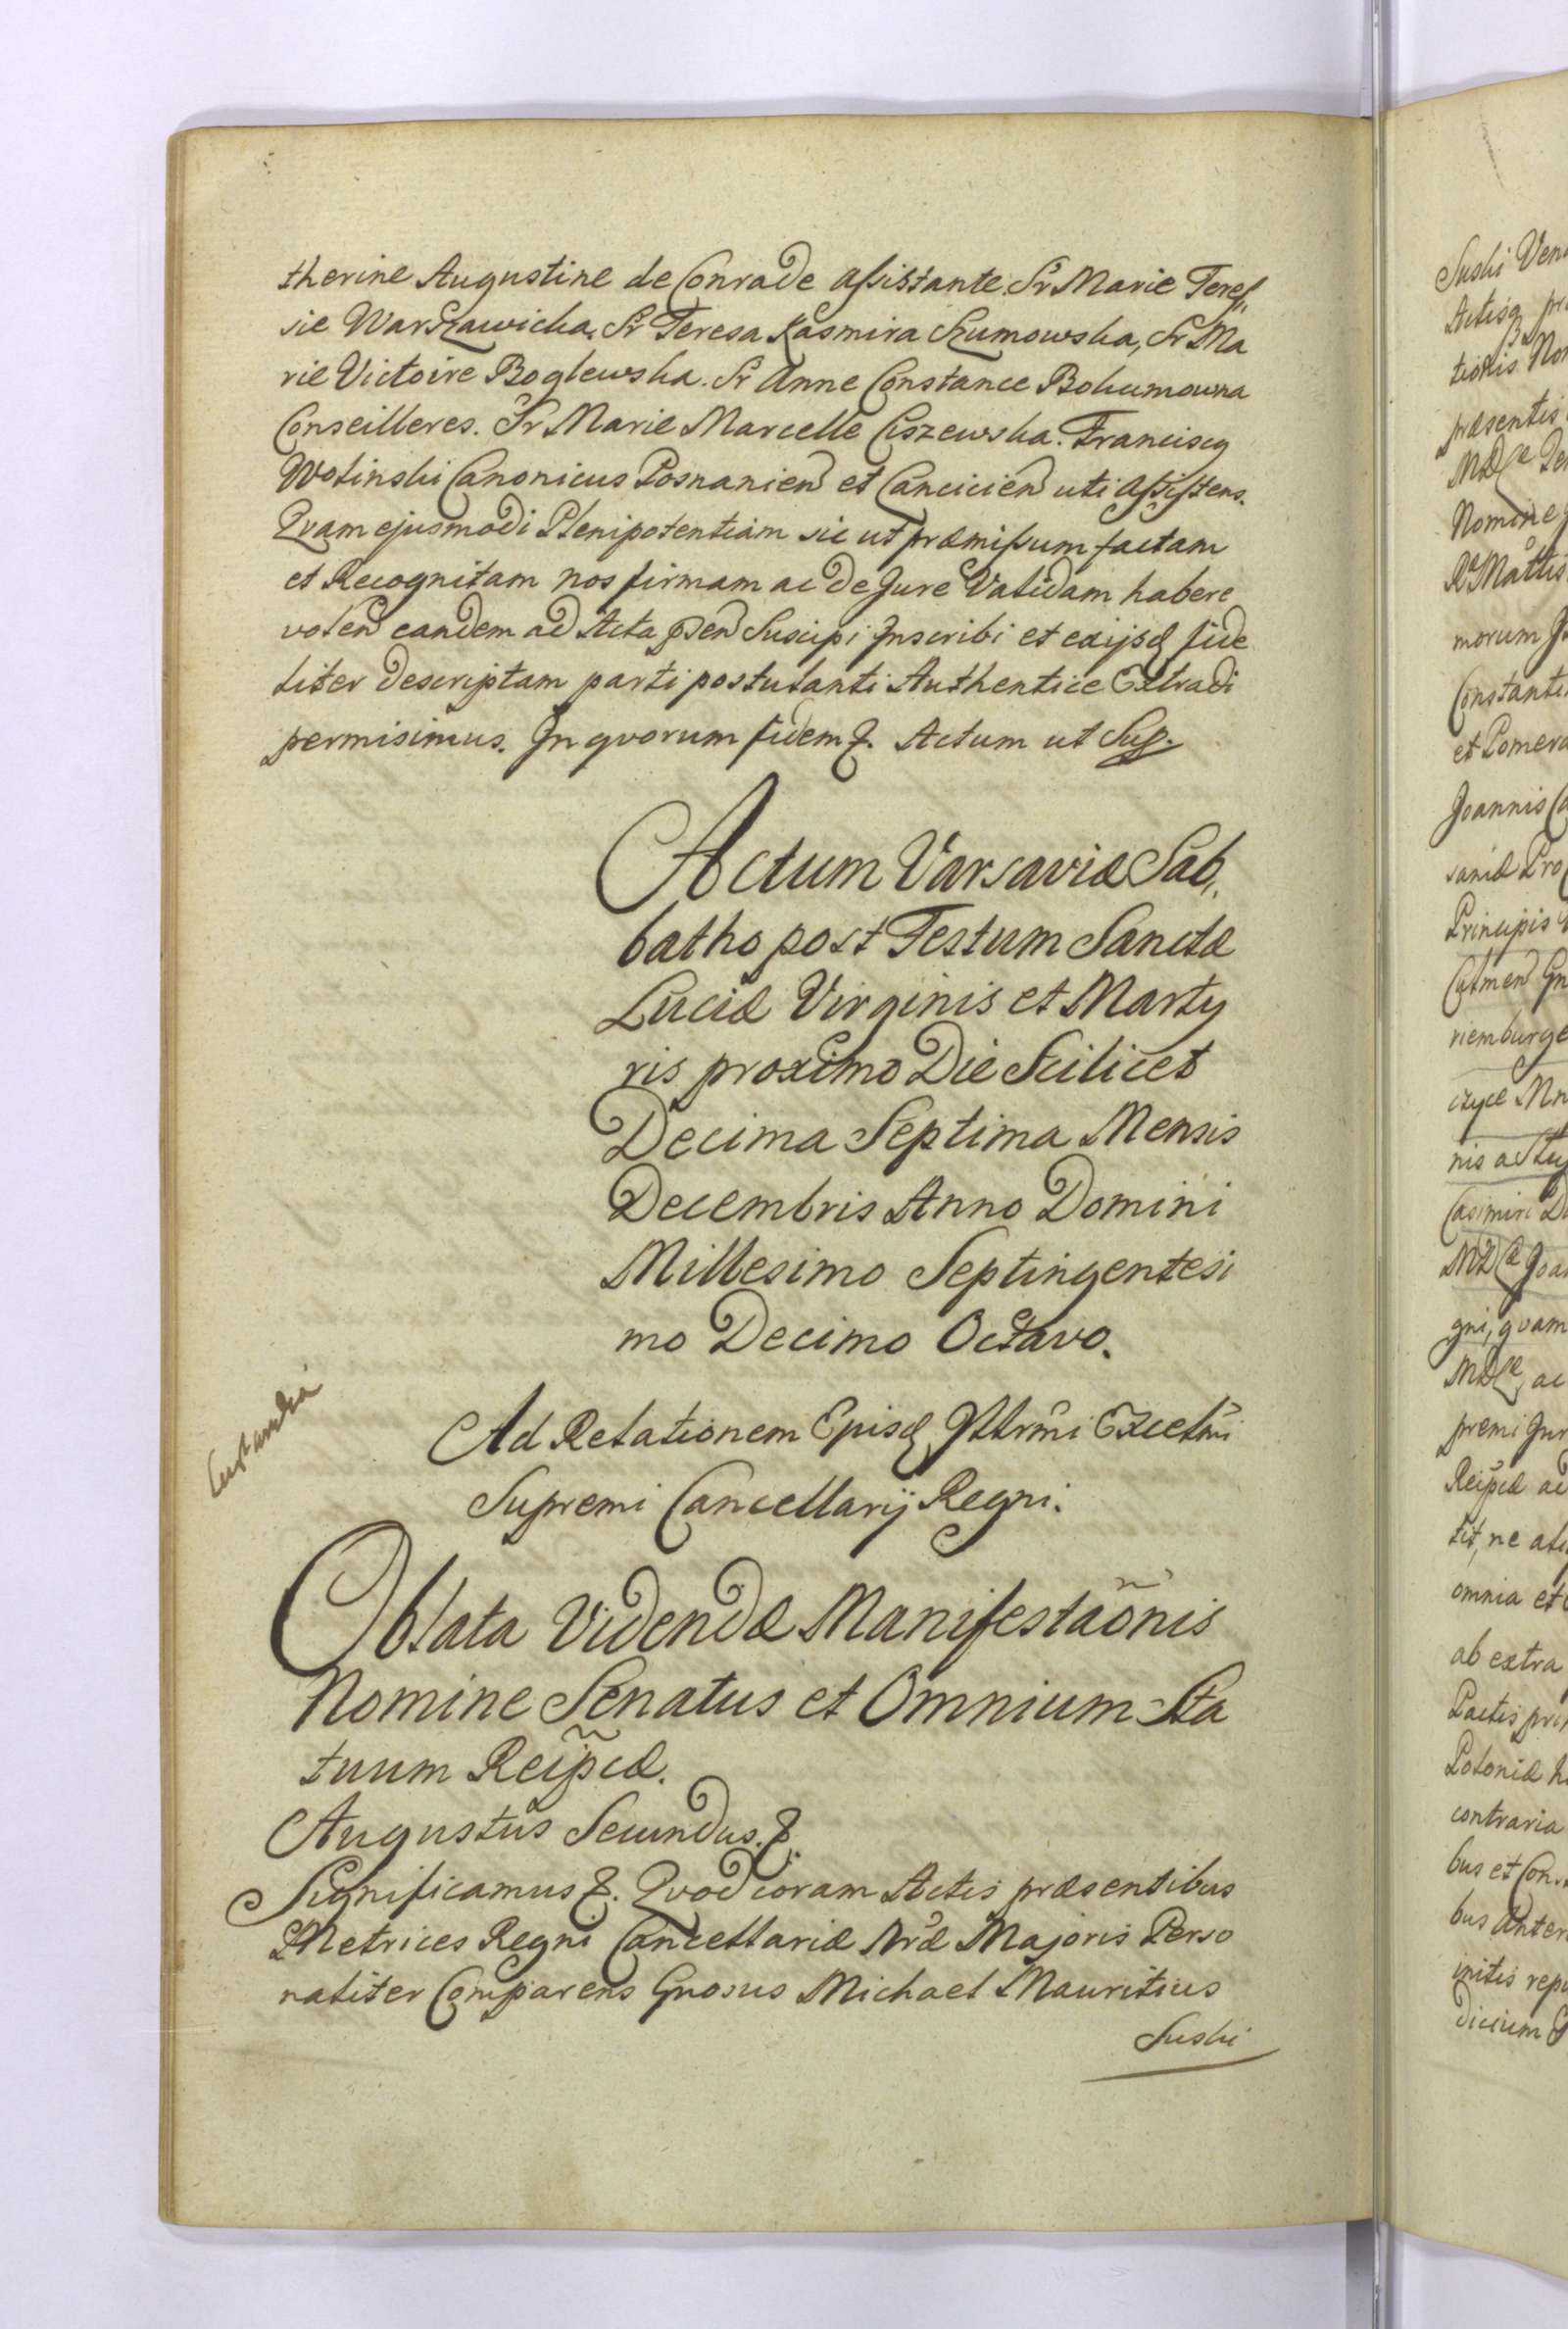 therine Augustine de Conrade assistante. Sr Marie Teres,,
sie Warszawicka. Sr Teresa Kasmira Szumowska, Sr Ma
rie Victoire Boglewska. Sr Anne Constance Bohumowna
Conseilleres. Sr Marie Marcelle Ciszewska. Franciscq
Wolinski Canonicus Posnanien et Cancicien uti Assistens.
Qvam ejusmodi Plenipotentiam sic ut præmissum factam
et Recognitam nos firmam ac De Jure Validam habere
volen eandem ad Acta pñen Suscipi Inscribi et exijsq fide
liter Descriptam parti postulanti Authentice Extradi
permisimus. In qvorum fidem &. Actum ut Sup.
Actum Varsaviæ Sab,,
batho post Festum Sanctæ
Luciæ Virginis et Marty
ris proximo Die Scilicet
Decima Septima Mensis
Decembris Anno Domini
Millesimo Septingentesi
mo Decimo Octavo.
Curlandia
Ad Relationem Episq Illrmi Excellmi
Supremi Cancellarij Regni.
Oblata Videndæ Manifestaõnis
Nomine Senatus et Omnium Sta
tuum Reipcæ.
Augustus Secundus. &.
Significamus &. Qvod coram Actis præsentibus
Metrices Regni Cancellariæ Nræ Majoris Perso
naliter Comparens Gnosus Michael Mauritius
Suski
Suski
præsentis
Nomine
morum
et Pomera
Joannis
Principis
riemburge
gni, qvam
premi
omnia et
ab extra
Pactis
Poloniæ
contraria
bus et
bus
initis
dicium